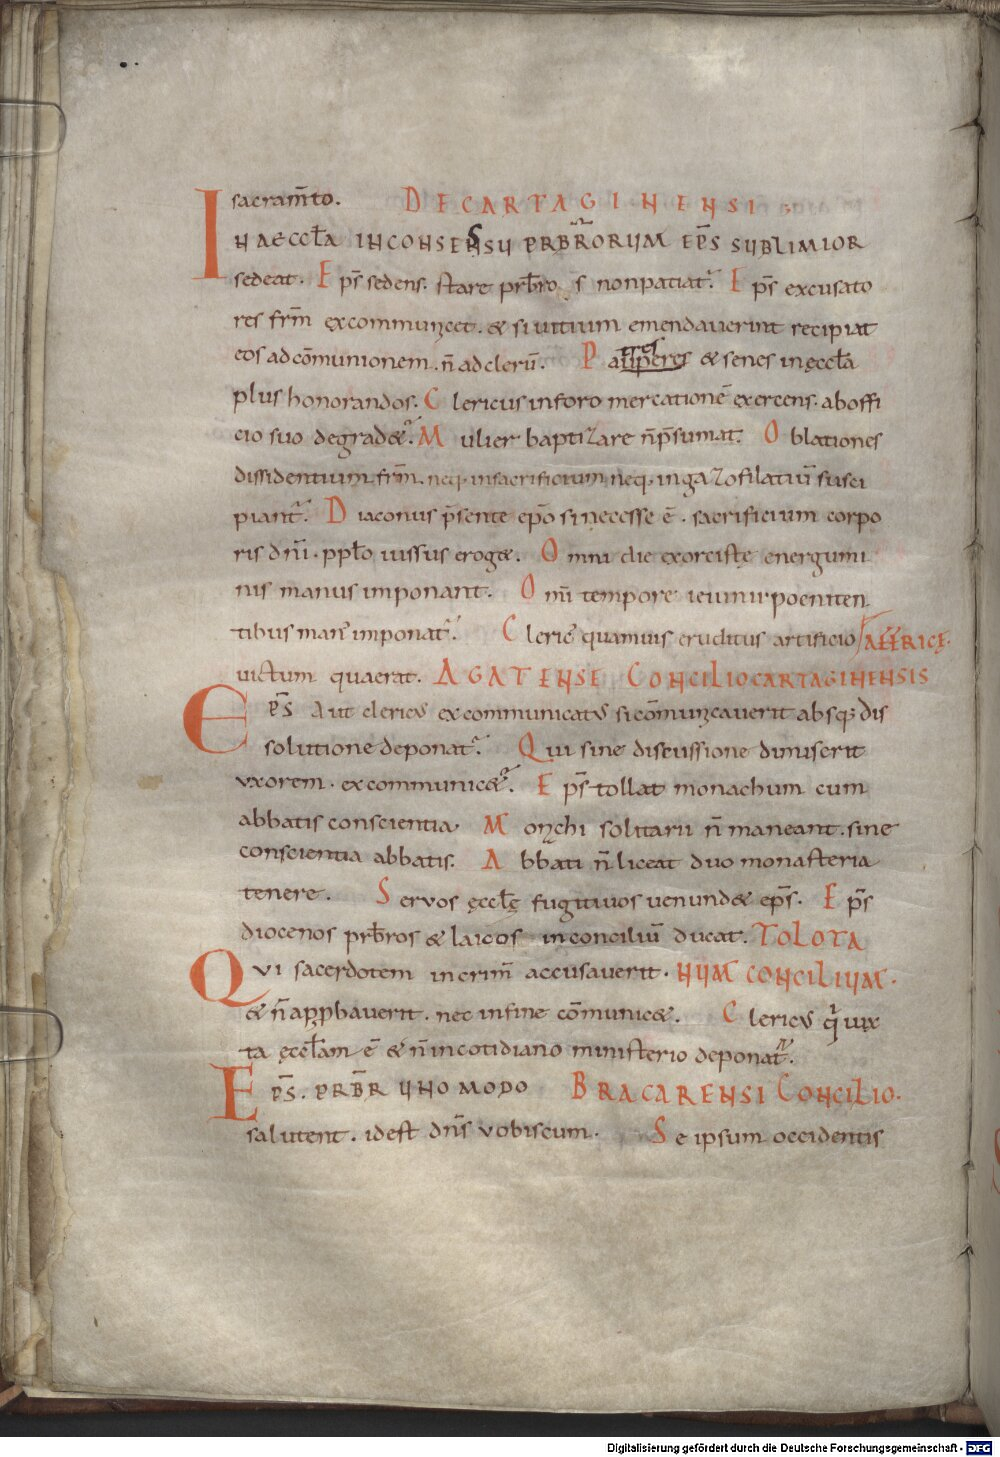 sacram̅to. DE CARTAGINENSI
IN AECCL̅A IN CONSENSU PRB̅RORUM EP̅S SUBLIMIOR
sedeat. Ep̅s sedens. stare prb̅ro s̅ non patiat᷑. Ep̅s excusato
res frm̅ excommunicet. & si uitium emendauerint recipiat
eos ad com̅unionem. n̅ ad cleru̅. Pa & senes in ęccl̅a
plus honorandos. Clericus in foro mercatione̅ exercens. ab offi
cio suo degrad&᷑. Mulier baptizare n̅ p̅sumat. Oblationes
dissidentium frm̅. neq. in sacrificium neq. in gazofilatiu̅ susci
piant᷑. Diaconus p̅sente ep̅o si necesse e̅. sacrificium corpo
ris dn̅i. ppl̅o iussus erog&. Omni die exorcistę energumi
nis manus imponant. Om̅i tempore ieiunii poeniten
tibus man᷒ imponat᷑. Cleric᷒ quamuis eruditus artificio / AFFRICĘ.
uictum quaerat. AGATENSE CONCILIO CARTAGINENSIS
Ep̅s Aut cleric᷒ excommunicat᷒ si com̅unicauerit absq; dis
solutione deponat᷑. Qui sine discussione dimiserit
uxorem. excommunic&᷑. Ep̅s tollat monachum cum
abbatis conscientia. Monachi solitarii n̅ maneant. sine
conscientia abbatis. Abbati n̅ liceat duo monasteria
tenere. Seruos ęccl̅ę fugitiuos uenund& ep̅s. Ep̅s
diocenos prb̅ros & laicos in conciliu̅ ducat. TOLOTA
Qui sacerdotem in crim̅ accusauerit. NUM CONCILIUM.
& n̅ app̱bauerit. nec in fine com̅unic&. Cleric᷒ qͥ iux
ta ęccl̅am e̅ & n̅ in cotidiano ministerio deponat᷑.
EP̅S. PRB̅R UNO MODO BRACARENSI CONCILIO.
salutent. id est dn̅s uobiscum. Se ipsum occidentis
Digitalisierung gefördert durch die Deutsche Forschungsgemeinschaft - DFG